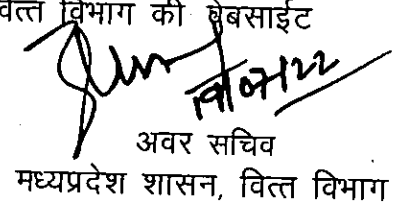 वित्त विभाग की वेबसाईट
अवर सचिव
मध्यप्रदेश शासन, वित्त विभाग